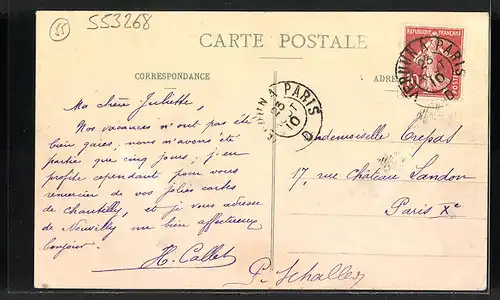 55
553268
CARTE POSTALE
CORRESPONDANCE
ADRE
REPUBLIQUE FRANÇAISE
10
VERDUN A PARIS
VERDUN A PARIS
Ma chère Juliette,
Nos vacances n'ont pas été
bien gaies; nous n'avons été
partis que cinq jours; j'en
profite cependant pour vous
remercier de vos jolies cartes
de Chantilly, et je vous adresse
de Neuvilly un bien affectueux
bonjour.
H. Callet
Mademoiselle Crepas
17, rue Château Landon
Paris Xe
P. Schaller